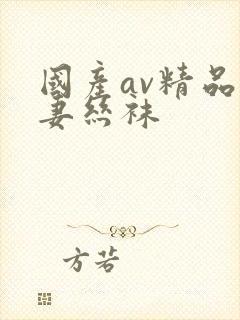 國產av精品
妻絲袜
方若